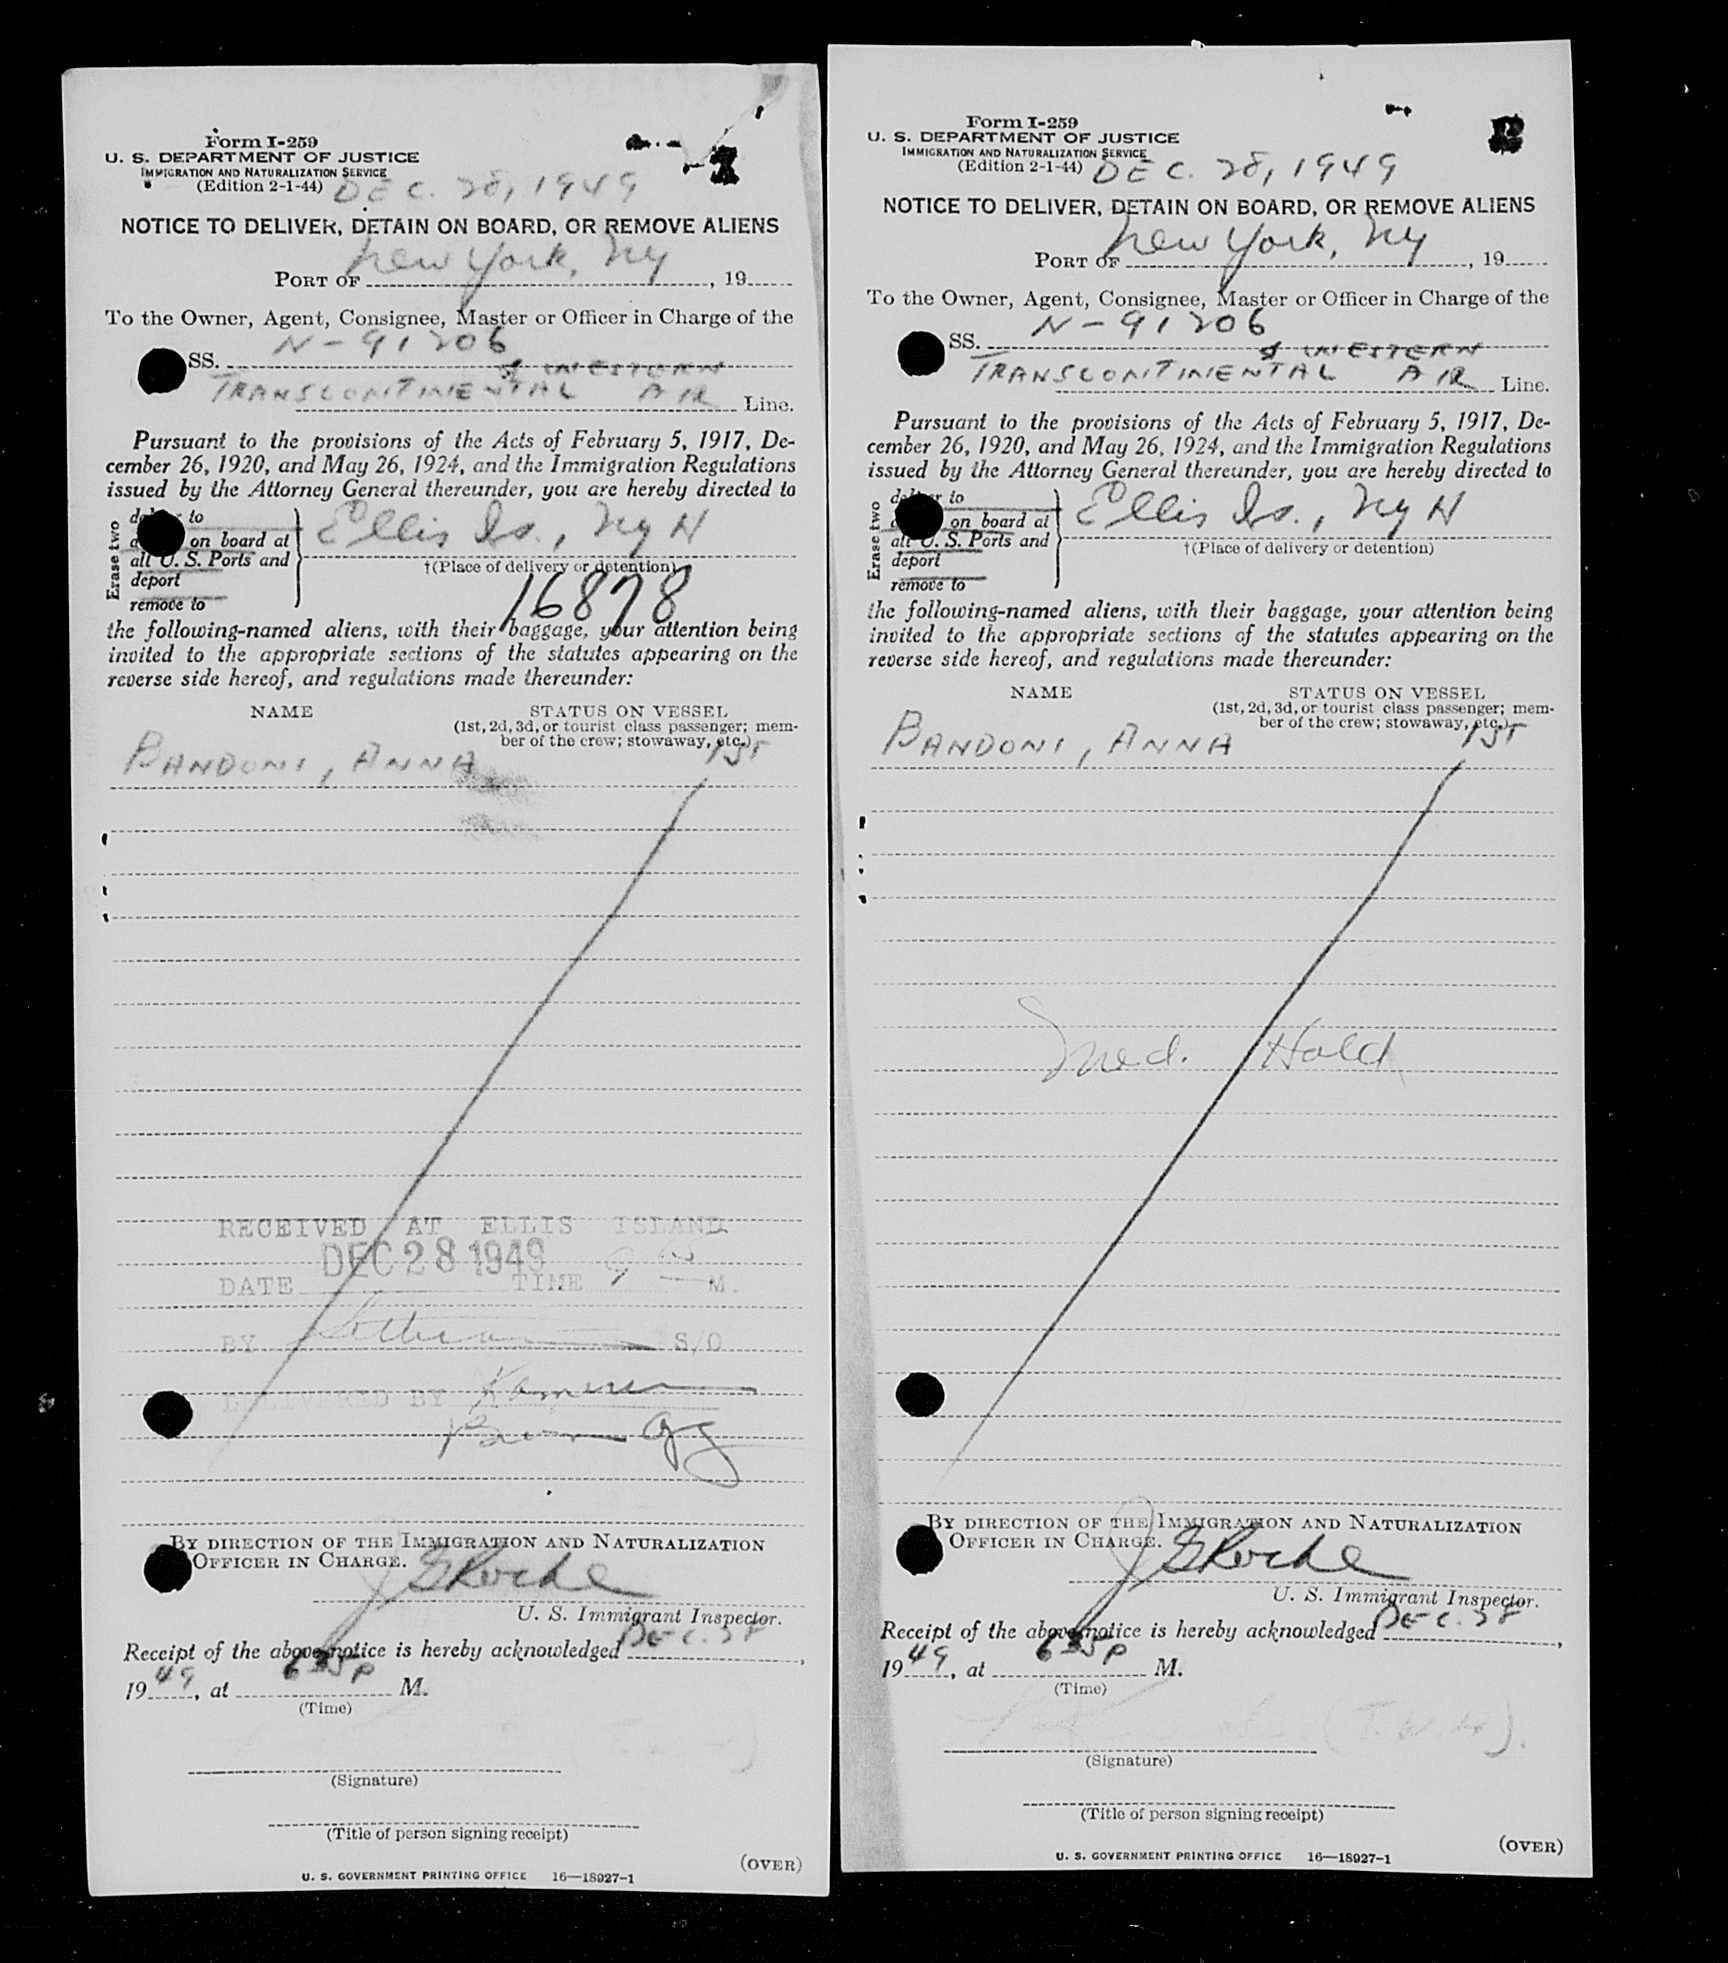 Form I-259
U. S. DEPARTMENT OF JUSTICE
IMMIGRATION AND NATURALIZATION SERVICE
(Edition 2-1-44) DEC. 28, 1949
NOTICE TO DELIVER, DETAIN ON BOARD, OR REMOVE ALIENS
PORT OF New York, Ny, 19
To the Owner, Agent, Consignee, Master or Officer in Charge of the
SS. N-91206
& WESTERN
TRANSCONTINENTAL AIR Line.
Pursuant to the provisions of the Acts of February 5, 1917, De-
cember 26, 1920, and May 26, 1924, and the Immigration Regulations
issued by the Attorney General thereunder, you are hereby directed to
Erase two
to
on board at
all U. S. Ports and
deport
remove to
Ellis Is., Ny H
†(Place of delivery or detention)
16878
the following-named aliens, with their baggage, your attention being
invited to the appropriate sections of the statutes appearing on the
reverse side hereof, and regulations made thereunder:
NAME STATUS ON VESSEL
(1st, 2d, 3d, or tourist class passenger; mem-
ber of the crew; stowaway, etc.)
BANDONI, ANNA 1ST
RECEIVED AT ELLIS ISLAND
DEC 28 1949
DATE TIME 9 M.
BY S/O
DELIVERED BY
BY DIRECTION OF THE IMMIGRATION AND NATURALIZATION
OFFICER IN CHARGE.
J G Roche
U. S. Immigrant Inspector.
Receipt of the above notice is hereby acknowledged DEC. 28,
1949, at 635P M.
(Time)
(Signature)
(Title of person signing receipt)
(OVER)
U. S. GOVERNMENT PRINTING OFFICE 16—18927-1
Form I-259
U. S. DEPARTMENT OF JUSTICE
IMMIGRATION AND NATURALIZATION SERVICE
(Edition 2-1-44) DEC. 28, 1949
NOTICE TO DELIVER, DETAIN ON BOARD, OR REMOVE ALIENS
PORT OF New York, Ny, 19
To the Owner, Agent, Consignee, Master or Officer in Charge of the
SS. N-91206
& WESTERN
TRANSCONTINENTAL AIR Line.
Pursuant to the provisions of the Acts of February 5, 1917, De-
cember 26, 1920, and May 26, 1924, and the Immigration Regulations
issued by the Attorney General thereunder, you are hereby directed to
Erase two
to
on board at
all U. S. Ports and
deport
remove to
Ellis Is., Ny H
†(Place of delivery or detention)
the following-named aliens, with their baggage, your attention being
invited to the appropriate sections of the statutes appearing on the
reverse side hereof, and regulations made thereunder:
NAME STATUS ON VESSEL
(1st, 2d, 3d, or tourist class passenger; mem-
ber of the crew; stowaway, etc.)
BANDONI, ANNA 1ST
Med. Hold
BY DIRECTION OF THE IMMIGRATION AND NATURALIZATION
OFFICER IN CHARGE.
J G Roche
U. S. Immigrant Inspector.
Receipt of the above notice is hereby acknowledged DEC. 28,
1949, at 635P M.
(Time)
(Signature)
(Title of person signing receipt)
(OVER)
U. S. GOVERNMENT PRINTING OFFICE 16—18927-1